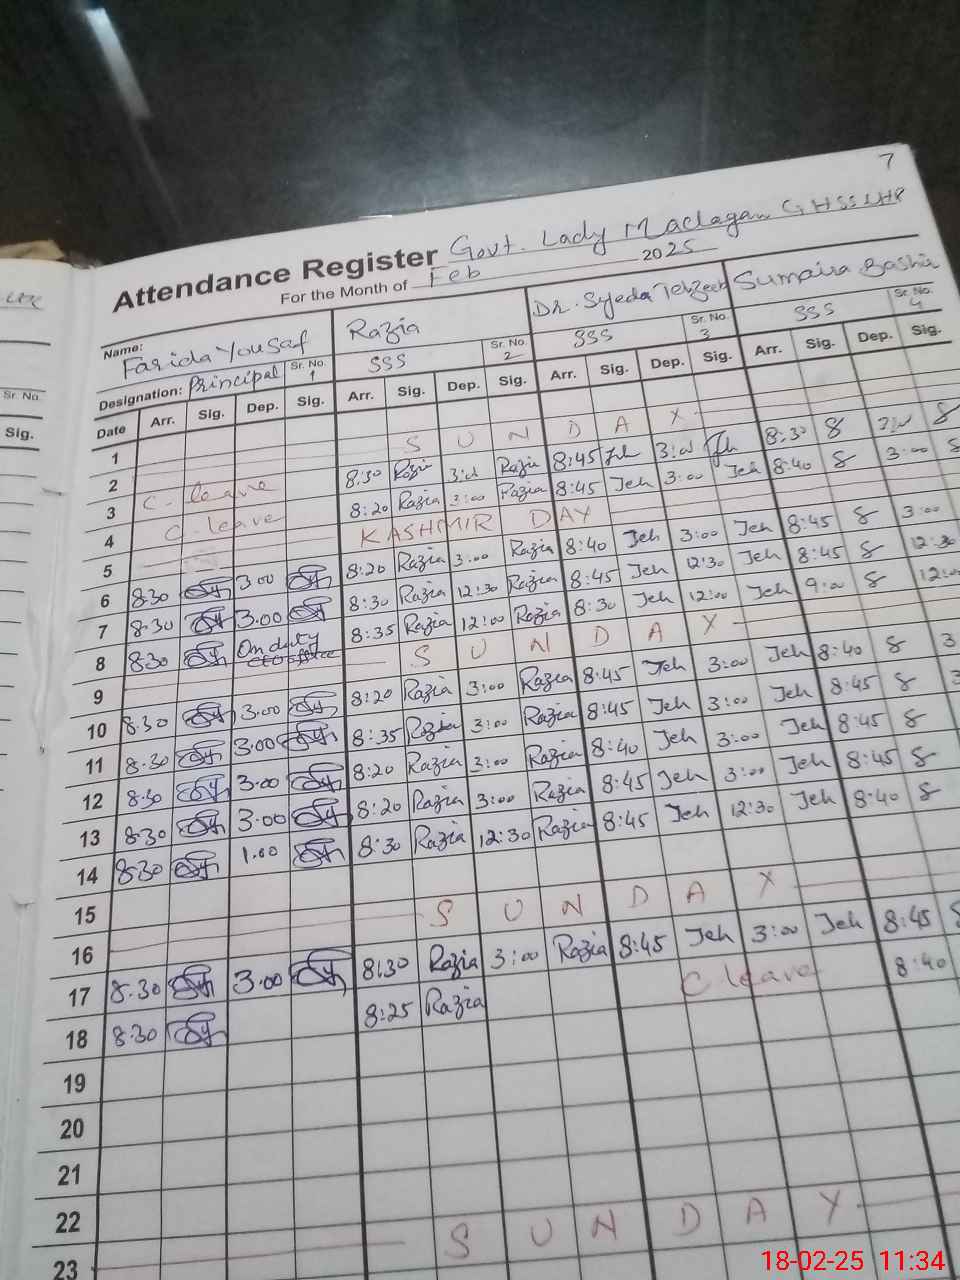 7
Attendance Register Govt. Lady Maclagan GHSS LHR
For the Month of Feb 2025
Name: Farida Yousaf Razia Dr. Syeda Tehzeeb Sumaira Bashir
Designation: Principal Sr. No. 1 SSS Sr. No. 2 SSS Sr. No. 3 SSS Sr. No. 4
Date Arr. Sig. Dep. Sig. Arr. Sig. Dep. Sig. Arr. Sig. Dep. Sig. Arr. Sig. Dep. Sig.
1
2 S U N D A Y
3 C. leave 8:30 Razia 3:00 Razia 8:45 Teh 3:00 Teh 8:30 S S
4 C. leave 8:20 Razia 3:00 Razia 8:45 Teh 3:00 Teh 8:40 S 3:00 S
5 KASHMIR DAY
6 8:30 3.00 8:20 Razia 3:00 Razia 8:40 Teh 3:00 Teh 8:45 S 3:00
7 8:30 3.00 8:30 Razia 12:30 Razia 8:45 Teh 12:30 Teh 8:45 S 12:30
8 8:30 On duty CEO office 8:35 Razia 12:00 Razia 8:30 Teh 12:00 Teh 9:00 S 12:00
9 S U N D A Y
10 8:30 3.00 8:20 Razia 3:00 Razia 8:45 Teh 3:00 Teh 8:40 S 3
11 8:30 3.00 8:35 Razia 3:00 Razia 8:45 Teh 3:00 Teh 8:45 S 3
12 8:30 3.00 8:20 Razia 3:00 Razia 8:40 Teh 3:00 Teh 8:45 S
13 8:30 3.00 8:20 Razia 3:00 Razia 8:45 Teh 3:00 Teh 8:45 S
14 8:30 1.00 8:30 Razia 12:30 Razia 8:45 Teh 12:30 Teh 8:40 S
15
16 S U N D A Y
17 8.30 3.00 8:30 Razia 3:00 Razia 8:45 Teh 3:00 Teh 8:45 S
18 8:30 8:25 Razia C. leave 8:40
19
20
21
22
23 S U N D A Y
Sr. No.
Sig.
18-02-25 11:34